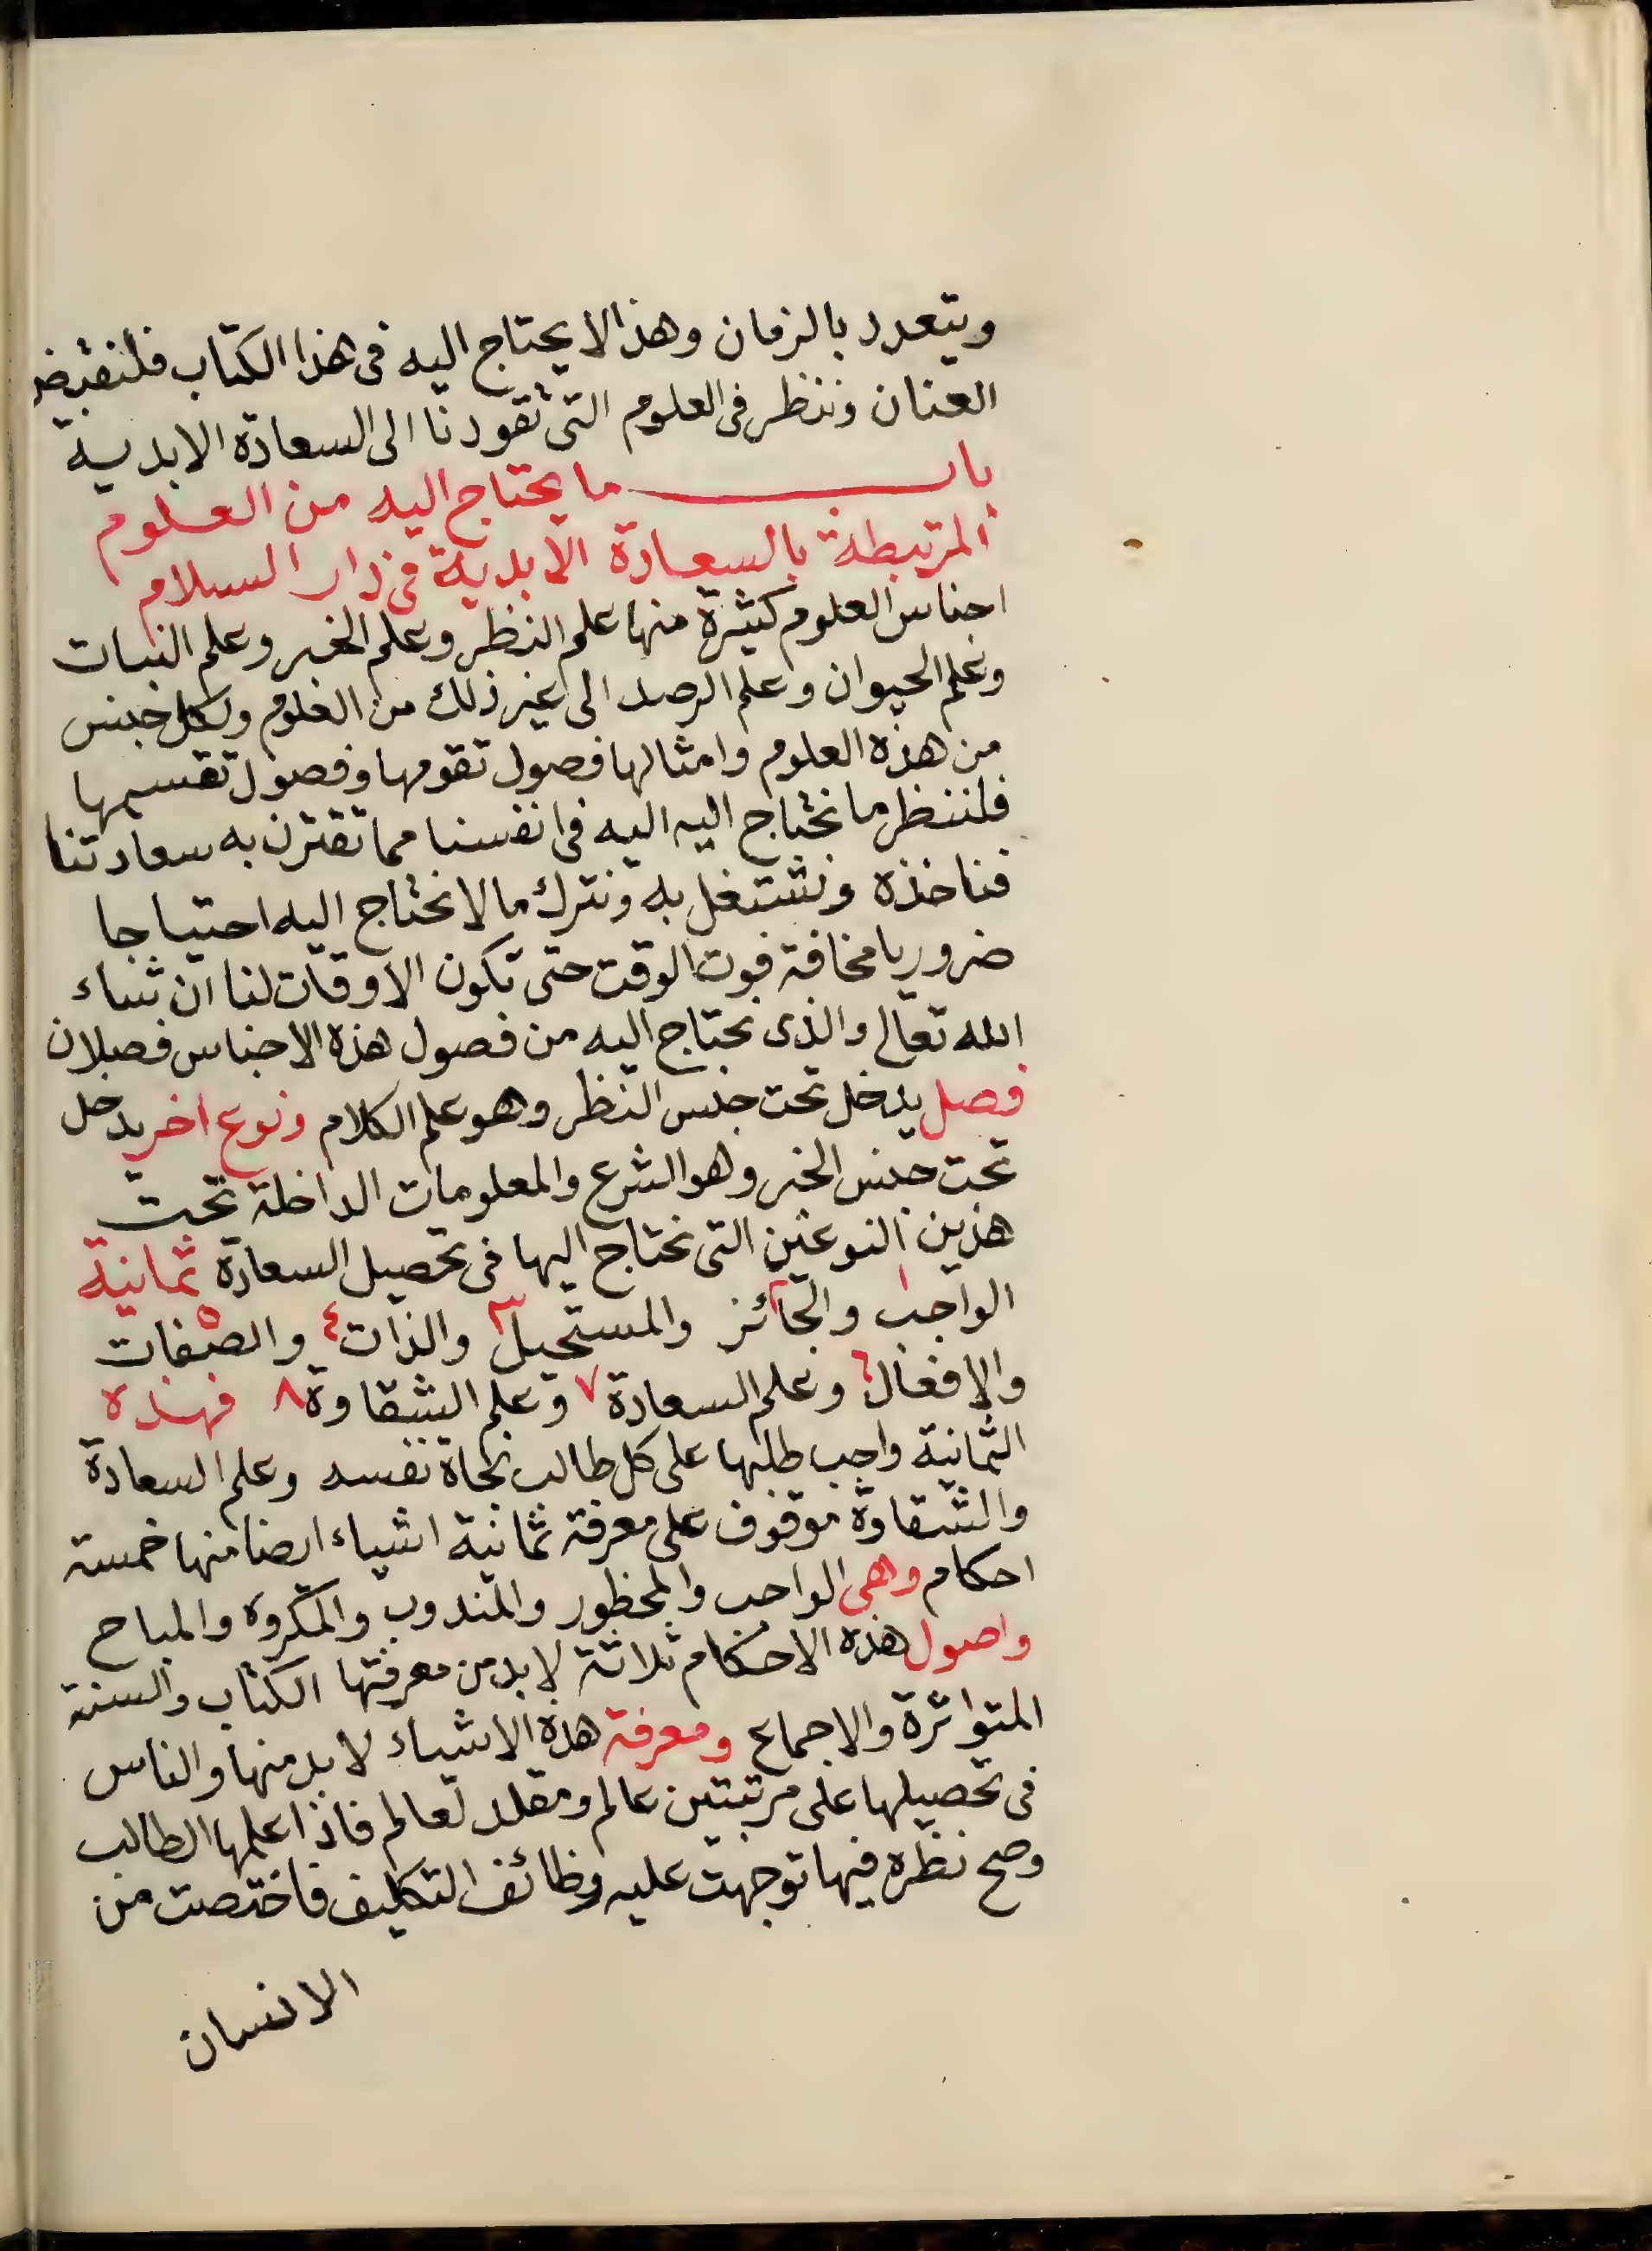 ويتعدد بالزمان وهذا لا يحتاج اليه فى هذا الكتاب فلنقبض
العنان وننظر فى العلوم التى تقودنا الى السعادة الابدية
باب ما يحتاج اليه من العلوم
المرتبطة بالسعادة الابدية فى دار السلام
اجناس العلوم كثيرة منها علم النظر وعلم الخبر وعلم النبات
وعلم الحيوان وعلم الرصد الى غير ذلك من العلوم ولكل جنس
من هذه العلوم وامثالها فصول تقومها وفصول تقسمها
فلننظر ما نحتاج اليه اليه فى انفسنا مما تقترن به سعادتنا
فناخذه ونشتغل به ونترك ما لا نحتاج اليه احتياجا
ضروريا مخافة فوت الوقت حتى تكون الاوقات لنا ان شاء
الله تعالى والذى نحتاج اليه من فصول هذه الاجناس فصلان
فصل يدخل تحت جنس النظر وهو علم الكلام ونوع اخر يدخل
تحت جنس الخبر وهو الشرع والمعلومات الداخلة تحت
هذين النوعين التى نحتاج اليها فى تحصيل السعادة ثمانية
الواجب ١ والجائز ٢ والمستحيل ٣ والذات ٤ والصفات ٥
والافعال ٦ وعلم السعادة ٧ وعلم الشقاوة ٨ فهذه
الثمانية واجب طلبها على كل طالب نجاة نفسه وعلم السعادة
والشقاوة موقوف على معرفة ثمانية اشياء ايضا منها خمسة
احكام وهى الواجب والمحظور والمندوب والمكروه والمباح
واصول هذه الاحكام ثلاثة لا بد من معرفتها الكتاب والسنة
المتواترة والاجماع ومعرفة هذه الاشياء لا بد منها والناس
فى تحصيلها على مرتبتين عالم ومقلد لعالم فاذا علمها الطالب
وصح نظره فيها توجهت عليه وظائف التكليف فاختصت من
الانسان